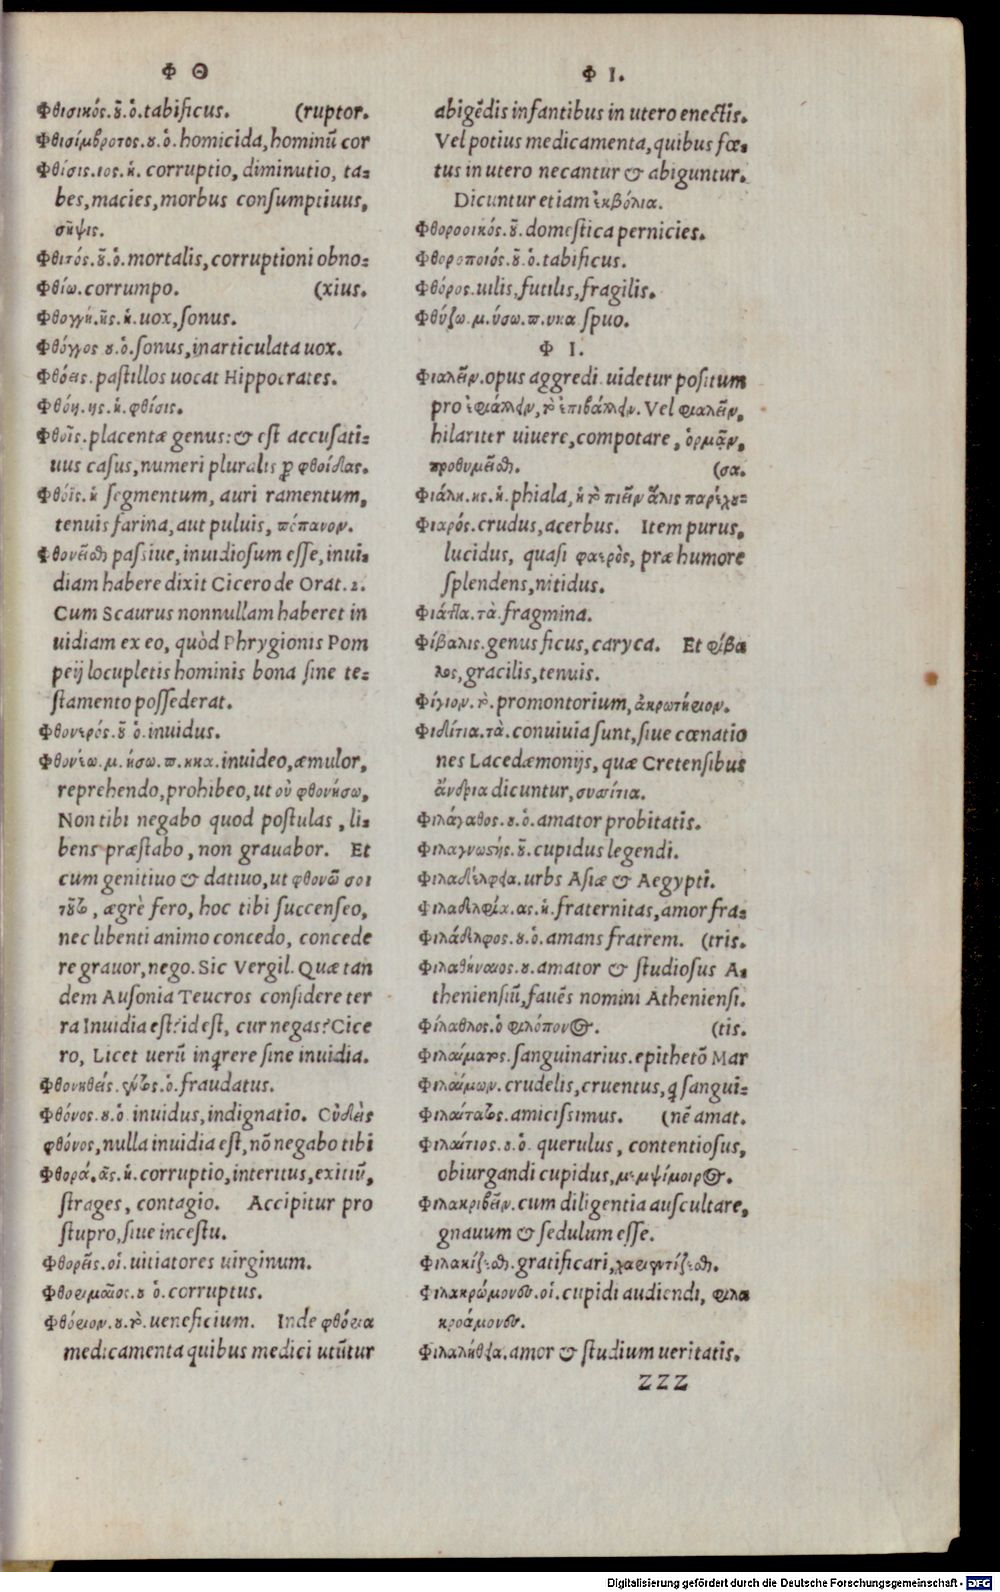 Φ Θ
Φθισικός.ȣ͂.ὁ.tabificus. (ruptor.
Φθισίμβροτος.ȣ.ὁ.homicida, hominū cor
Φθίσις.ιος.ἡ. corruptio, diminutio, ta=
bes, macies, morbus consumptiuus,
σῆψις.
Φθιτός.ȣ͂.ὁ.mortalis, corruptioni obno=
Φθίω.corrumpo. (xius.
Φθογγή.ῆς.ἡ.uox, sonus.
Φθόγγος ȣ.ὁ.sonus, inarticulata uox.
Φθόεις.pastillos uocat Hippocrates.
Φθόη.ης.ἡ.φθίσις.
Φθοῖς.placentæ genus:& est accusati=
uus casus, numeri pluralis ꝓ φθοίδας.
Φθόϊς.ἡ segmentum, auri ramentum,
tenuis farina, aut puluis, πέπανον.
Φθονεῖσθαι passiue, inuidiosum esse, inui=
diam habere dixit Cicero de Orat.2.
Cum Scaurus nonnullam haberet in
uidiam ex eo, quòd Phrygionis Pom
peij locupletis hominis bona sine te=
stamento possederat.
Φθονερός.ȣ͂ ὁ.inuidus.
Φθονέω.μ.ήσω.π.ηκα.inuideo, æmulor,
reprehendo, prohibeo, ut οὐ φθονήσω,
Non tibi negabo quod postulas, li=
bens præstabo, non grauabor. Et
cum genitiuo & datiuo, ut φθονῶ σοι
τȣ́τȣ, ægrè fero, hoc tibi succenseo,
nec libenti animo concedo, concede
re grauor, nego. Sic Vergil. Quæ tan
dem Ausonia Teucros considere ter
ra Inuidia est? id est, cur negas? Cice
ro, Licet uerū inqrere sine inuidia.
Φθονηθείς.έντος.ὁ.fraudatus.
Φθόνος.ȣ.ὁ inuidus, indignatio. Οὐδεὶς
φθόνος, nulla inuidia est, nō negabo tibi
Φθορά.ᾶς.ἡ.corruptio, interitus, exitiū,
strages, contagio. Accipitur pro
stupro, siue incestu.
Φθορεῖς.οἱ.uitiatores uirginum.
Φθοριμαῖος.ȣ ὁ.corruptus.
Φθόριον.ȣ.τὸ.ueneficium. Inde φθόρια
medicamenta quibus medici utūtur
Φ Ι.
abigēdis infantibus in utero enectis.
Vel potius medicamenta, quibus fœ=
tus in utero necantur & abiguntur.
Dicuntur etiam ἐκβόλια.
Φθοροοικός.ȣ͂.domestica pernicies.
Φθοροποιός.ȣ͂.ὁ.tabificus.
Φθόρος.uilis, futilis, fragilis.
Φθύζω.μ.ύσω.π.υκα spuo.
Φ Ι.
Φιαλεῖν.opus aggredi.uidetur positum
pro ἐφιάλλειν, τὸ ἐπιβάλλειν. Vel φιαλεῖν,
hilariter uiuere, compotare, ὁρμᾷν,
προθυμεῖσθαι. (σα.
Φιάλη.ης.ἡ.phiala, ἡ τὸ πιεῖν ἅλις παρέχου=
Φιαρός.crudus, acerbus. Item purus,
lucidus, quasi φαερὸς, præ humore
splendens, nitidus.
Φιάτλα.τὰ.fragmina.
Φίβαλις.genus ficus, caryca. Et φίβα
λος, gracilis, tenuis.
Φίγιον.τὸ.promontorium, ἀκρωτήριον.
Φιδίτια.τὰ.conuiuia sunt, siue cœnatio
nes Lacedæmonijs, quæ Cretensibus
ἄνδρια dicuntur, συσσίτια.
Φιλάγαθος.ȣ.ὁ.amator probitatis.
Φιλαγνωσής.ȣ͂.cupidus legendi.
Φιλαδέλφεια.urbs Asiæ & Aegypti.
Φιλαδελφία.ας.ἡ.fraternitas, amor fra=
Φιλάδελφος.ȣ.ὁ.amans fratrem. (tris.
Φιλαθήναιος.ȣ.amator & studiosus A=
theniensiū, fauēs nomini Atheniensi.
Φίλαθλος.ὁ φιλόπονος. (tis.
Φιλαίματος.sanguinarius.epithetō Mar
Φιλαίμων.crudelis, cruentus, q sangui=
Φιλαίτατος.amicissimus. (nē amat.
Φιλαίτιος.ȣ.ὁ. querulus, contentiosus,
obiurgandi cupidus, μεμψίμοιρος.
Φιλακριβεῖν.cum diligentia auscultare,
gnauum & sedulum esse.
Φιλακίζεσθαι.gratificari, χαριεντίζεσθαι.
Φιλακρώμονες.οἱ.cupidi audiendi, φιλη
κροάμονες.
Φιλαλήθεια.amor & studium ueritatis.
ZZZ
Digitalisierung gefördert durch die Deutsche Forschungsgemeinschaft - DFG